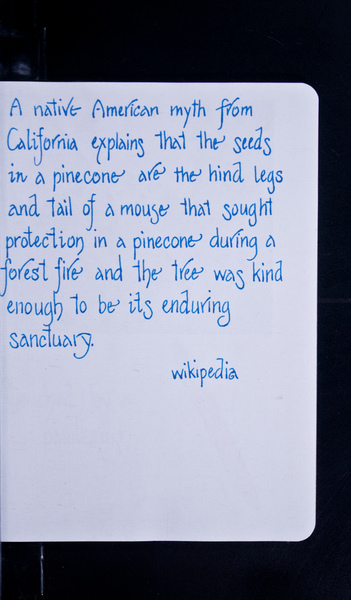 A native American myth from
California explains that the seeds
in a pinecone are the hind legs
and tail of a mouse that sought
protection in a pinecone during a
forest fire and the tree was kind
enough to be its enduring
sanctuary.
wikipedia